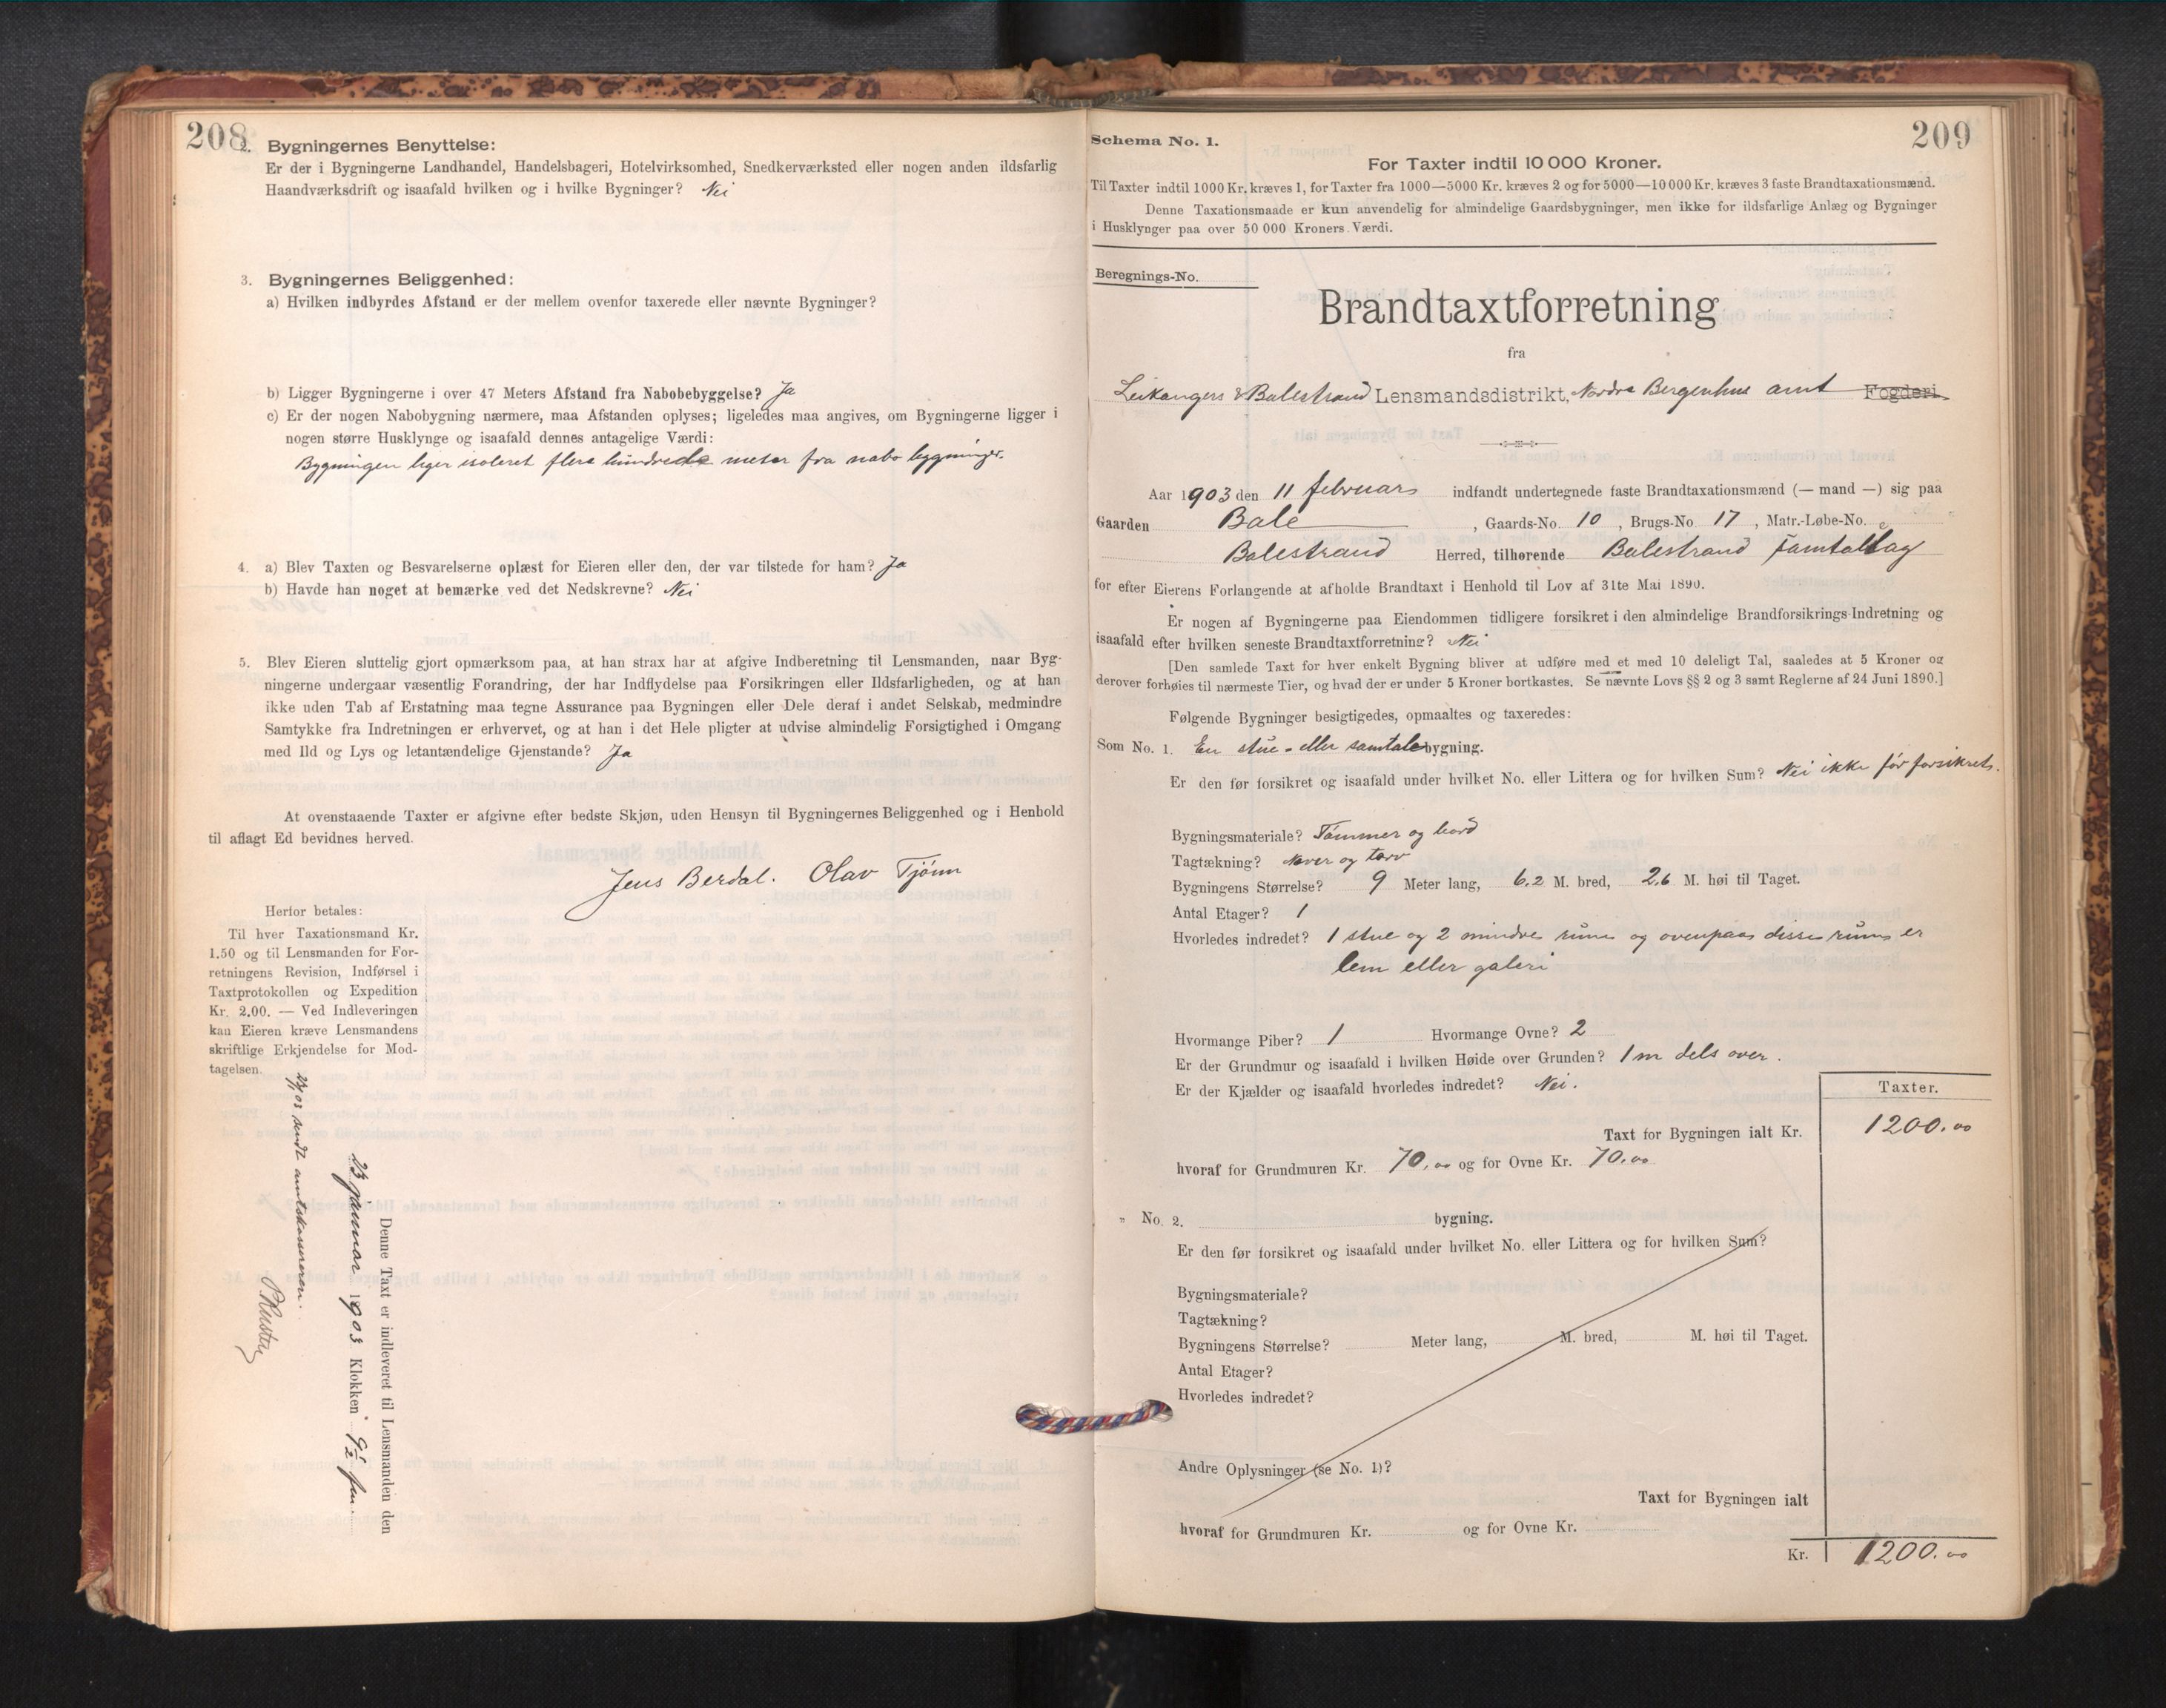 208
2. Bygningernes Benyttelse:
Er der i Bygningerne Landhandel, Handelsbageri, Hotelvirksomhed, Snedkerværksted eller nogen anden ildsfarlig
Haandværksdrift og isaafald hvilken og i hvilke Bygninger? Nei
3. Bygningernes Beliggenhed:
a) Hvilken indbyrdes Afstand er der mellem ovenfor taxerede eller nævnte Bygninger?
b) Ligger Bygningerne i over 47 Meters Afstand fra Nabobebyggelse? Ja
c) Er der nogen Nabobygning nærmere, maa Afstanden oplyses; ligeledes maa angives, om Bygningerne ligger i
nogen større Husklynge og isaafald dennes antagelige Værdi:
Bygningen liger isoleret flere hundrede meter fra nabo bygninger.
4. a) Blev Taxten og Besvarelserne oplæst for Eieren eller den, der var tilstede for ham? Ja
b) Havde han noget at bemærke ved det Nedskrevne? Nei
5. Blev Eieren sluttelig gjort opmærksom paa, at han strax har at afgive Indberetning til Lensmanden, naar Byg-
ningerne undergaar væsentlig Forandring, der har Indflydelse paa Forsikringen eller Ildsfarligheden, og at han
ikke uden Tab af Erstatning maa tegne Assurance paa Bygningen eller Dele deraf i andet Selskab, medmindre
Samtykke fra Indretningen er erhvervet, og at han i det Hele pligter at udvise almindelig Forsigtighed i Omgang
med Ild og Lys og letantændelige Gjenstande? Ja
At ovenstaaende Taxter er afgivne efter bedste Skjøn, uden Hensyn til Bygningernes Beliggenhed og i Henhold
til aflagt Ed bevidnes herved.
Jens Berdal. Olav Tjönn
Herfor betales:
Til hver Taxationsmand Kr.
1.50 og til Lensmanden for For-
retningens Revision, Indførsel i
Taxtprotokollen og Expedition
Kr. 2.00. — Ved Indleveringen
kan Eieren kræve Lensmandens
skriftlige Erkjendelse for Mod-
tagelsen.
Denne Taxt er indleveret til Lensmanden den
23 januar 1903 Klokken 9½ fm.
sendt amtskassereren.
209
Schema No. 1.
For Taxter indtil 10 000 Kroner.
Til Taxter indtil 1000 Kr. kræves 1, for Taxter fra 1000—5000 Kr. kræves 2 og for 5000—10 000 Kr. kræves 3 faste Brandtaxationsmænd.
Denne Taxationsmaade er kun anvendelig for almindelige Gaardsbygninger, men ikke for ildsfarlige Anlæg og Bygninger
i Husklynger paa over 50 000 Kroners Værdi.
Beregnings-No.
Brandtaxtforretning
fra
Leikangers & Balestrand Lensmandsdistrikt, Nordre Bergenhus amt Fogderi.
Aar 1903 den 11 februar indfandt undertegnede faste Brandtaxationsmænd (— mand —) sig paa
Gaarden Bale, Gaards-No. 10, Brugs-No. 17, Matr.-Løbe-No.
Balestrand Herred, tilhørende Balestrand samtallag
for efter Eierens Forlangende at afholde Brandtaxt i Henhold til Lov af 31te Mai 1890.
Er nogen af Bygningerne paa Eiendommen tidligere forsikret i den almindelige Brandforsikrings-Indretning og
isaafald efter hvilken seneste Brandtaxtforretning? Nei
[Den samlede Taxt for hver enkelt Bygning bliver at udføre med et med 10 deleligt Tal, saaledes at 5 Kroner og
derover forhøies til nærmeste Tier, og hvad der er under 5 Kroner bortkastes. Se nævnte Lovs §§ 2 og 3 samt Reglerne af 24 Juni 1890.]
Følgende Bygninger besigtigedes, opmaaltes og taxeredes:
Som No. 1. En stue- eller samtale bygning.
Er den før forsikret og isaafald under hvilket No. eller Littera og for hvilken Sum? Nei ikke før forsikrets.
Bygningsmateriale? Tömmer og bord
Tagtækning? Never og torv
Bygningens Størrelse? 9 Meter lang, 6.2 M. bred, 2.6 M. høi til Taget.
Antal Etager? 1
Hvorledes indredet? 1 stue og 2 mindre rum og ovenpaa disse rum er
lem eller galeri
Hvormange Piber? 1 Hvormange Ovne? 2
Er der Grundmur og isaafald i hvilken Høide over Grunden? 1 m dels over.
Er der Kjælder og isaafald hvorledes indredet? Nei.
Taxter.
Taxt for Bygningen ialt Kr. 1200.00
hvoraf for Grundmuren Kr. 70.00 og for Ovne Kr. 70.00
" No. 2. bygning.
Er den før forsikret og isaafald under hvilket No. eller Littera og for hvilken Sum?
Bygningsmateriale?
Tagtækning?
Bygningens Størrelse? Meter lang, M. bred, M. høi til Taget.
Antal Etager?
Hvorledes indredet?
Andre Oplysninger (se No. 1)?
Taxt for Bygningen ialt
hvoraf for Grundmuren Kr. og for Ovne Kr.
Kr. 1200.00